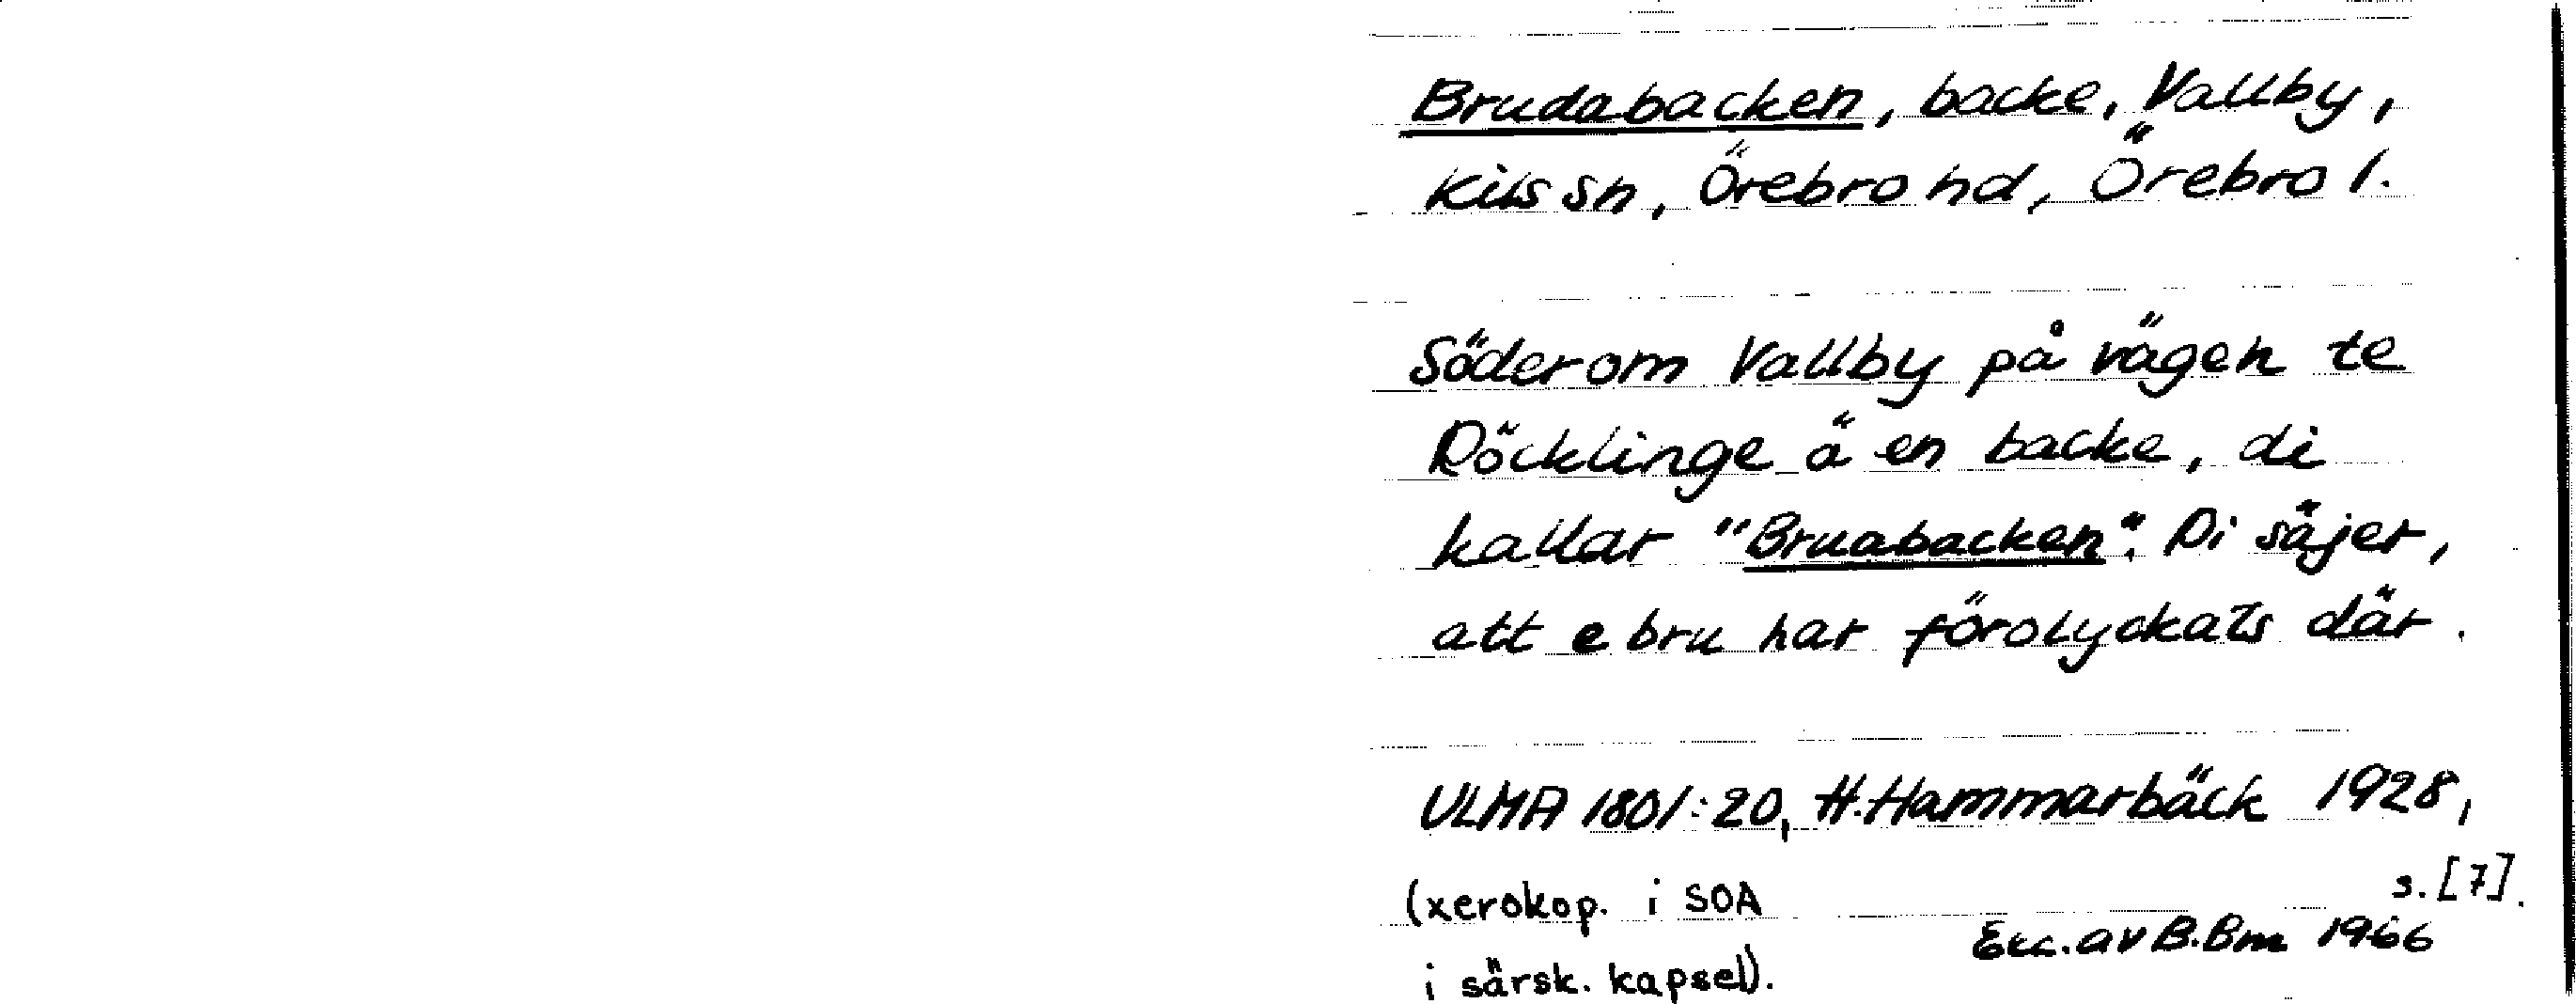 Brudabacken, backe, Vallby,
Kils sn, Örebro hd, Örebro l.
Söder om Vallby på vägen te
Röcklinge ä en backe, di
kallar "Bruabacken". Di säjer,
att e bru har förolyckats där.
ULMA 1801:20, H. Hammarbäck 1928,
s. [7].
(xerokop. i SOA
Exc. av B. Bm 1966
i särsk. kapsel).